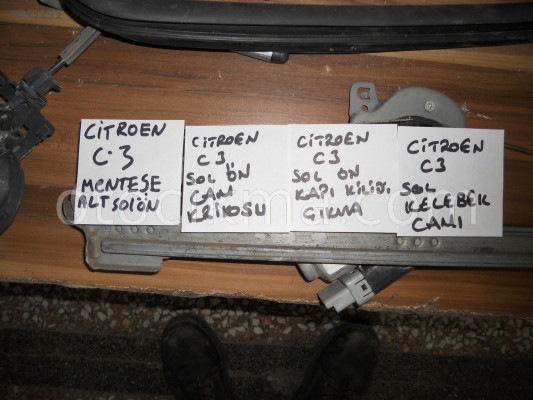 CİTROEN
C-3
MENTEŞE
ALT SOLÖN
CİTROEN
C3
SOL ÖN
CAM
KRİKOSU
CİTROEN
C3
SOL ÖN
KAPI KİLİDİ
ÇIKMA
CİTROEN
C3
SOL
KELEBEK
CAMI